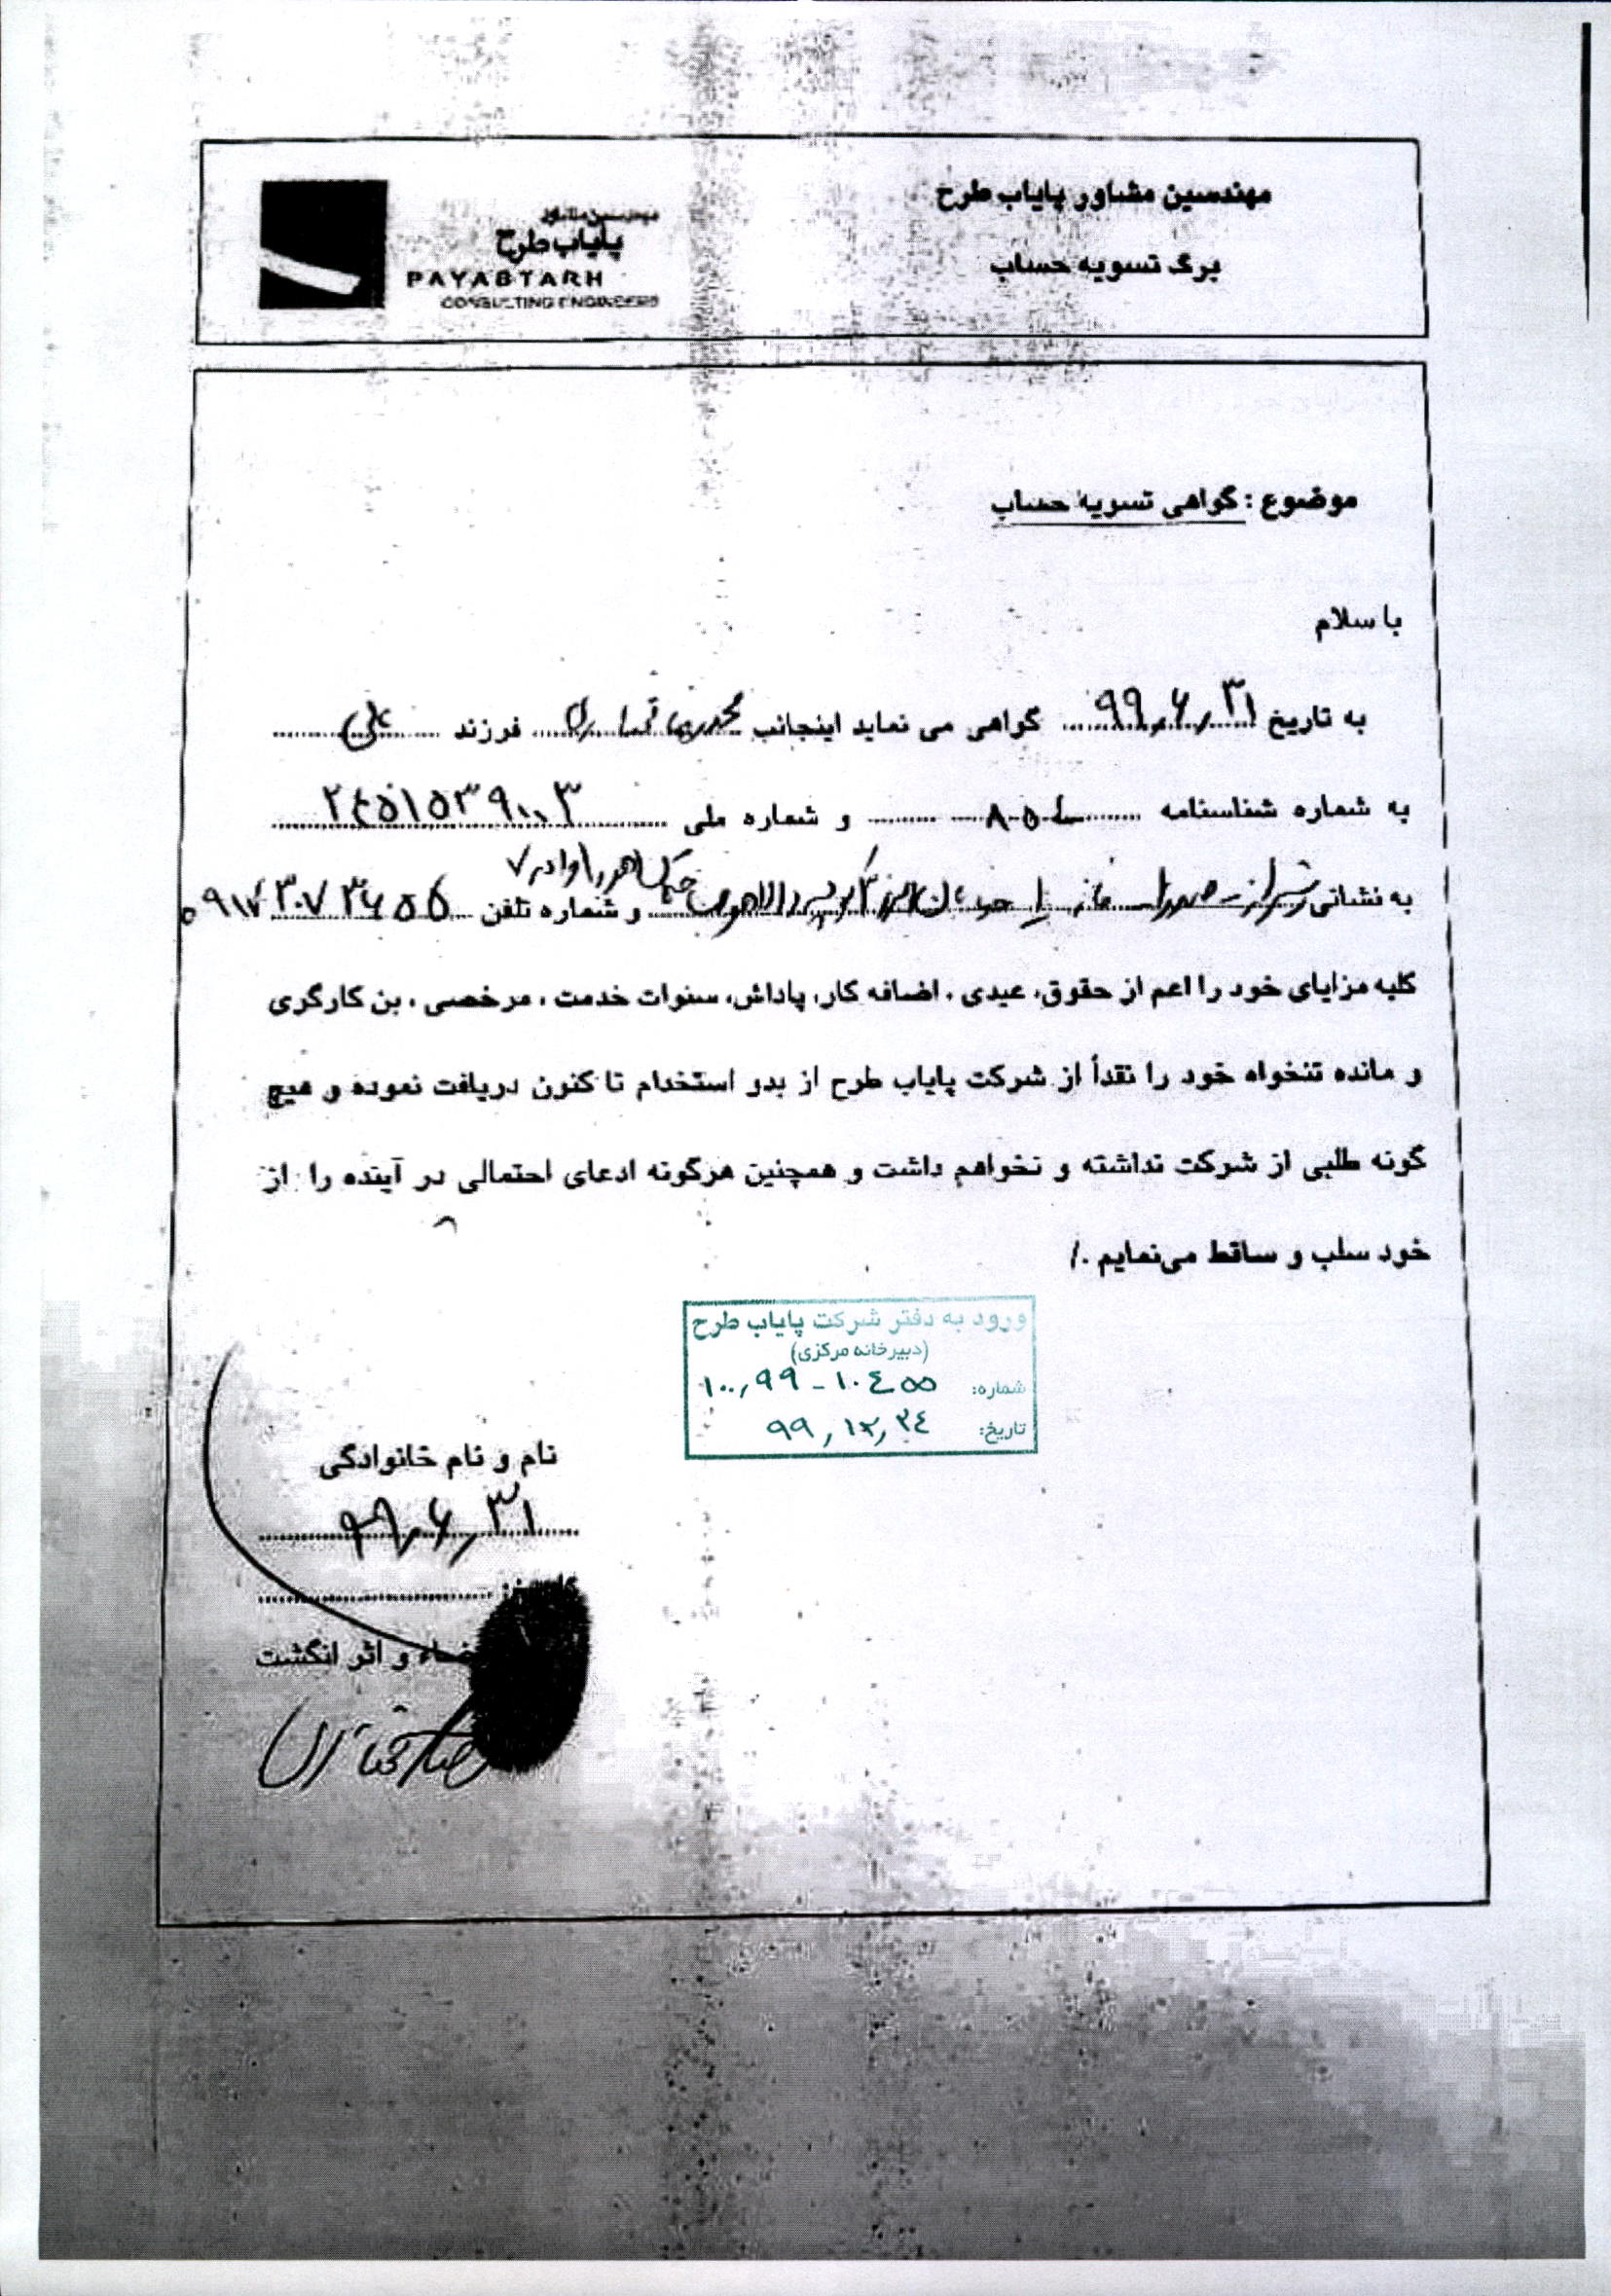 مهندسین مشاور پایاب طرح
برگ تسویه حساب
مهندسین مشاور
پایاب طرح
PAYABTARH
CONSULTING ENGINEERS
موضوع : گواهی تسویه حساب
با سلام
به تاریخ ۹۹٫۶٫۳۱ گواهی می نماید اینجانب محمدرضا فرزند علی
به شماره شناسنامه و شماره ملی
به نشانی شیراز - و شماره تلفن
کلیه مزایای خود را اعم از حقوق، عیدی ، اضافه کار، پاداش، سنوات خدمت ، مرخصی ، بن کارگری
و مانده تنخواه خود را نقداً از شرکت پایاب طرح از بدو استخدام تا کنون دریافت نموده و هیچ
گونه طلبی از شرکت نداشته و نخواهم داشت و همچنین هرگونه ادعای احتمالی در آینده را از
خود سلب و ساقط می‌نمایم ./
ورود به دفتر شرکت پایاب طرح
(دبیرخانه مرکزی)
شماره: ۱۰۰٫۹۹ - ۱۰۴۵۵
تاریخ: ۹۹٫۱۲٫۲۴
نام و نام خانوادگی
۹۹٫۶٫۳۱
و اثر انگشت